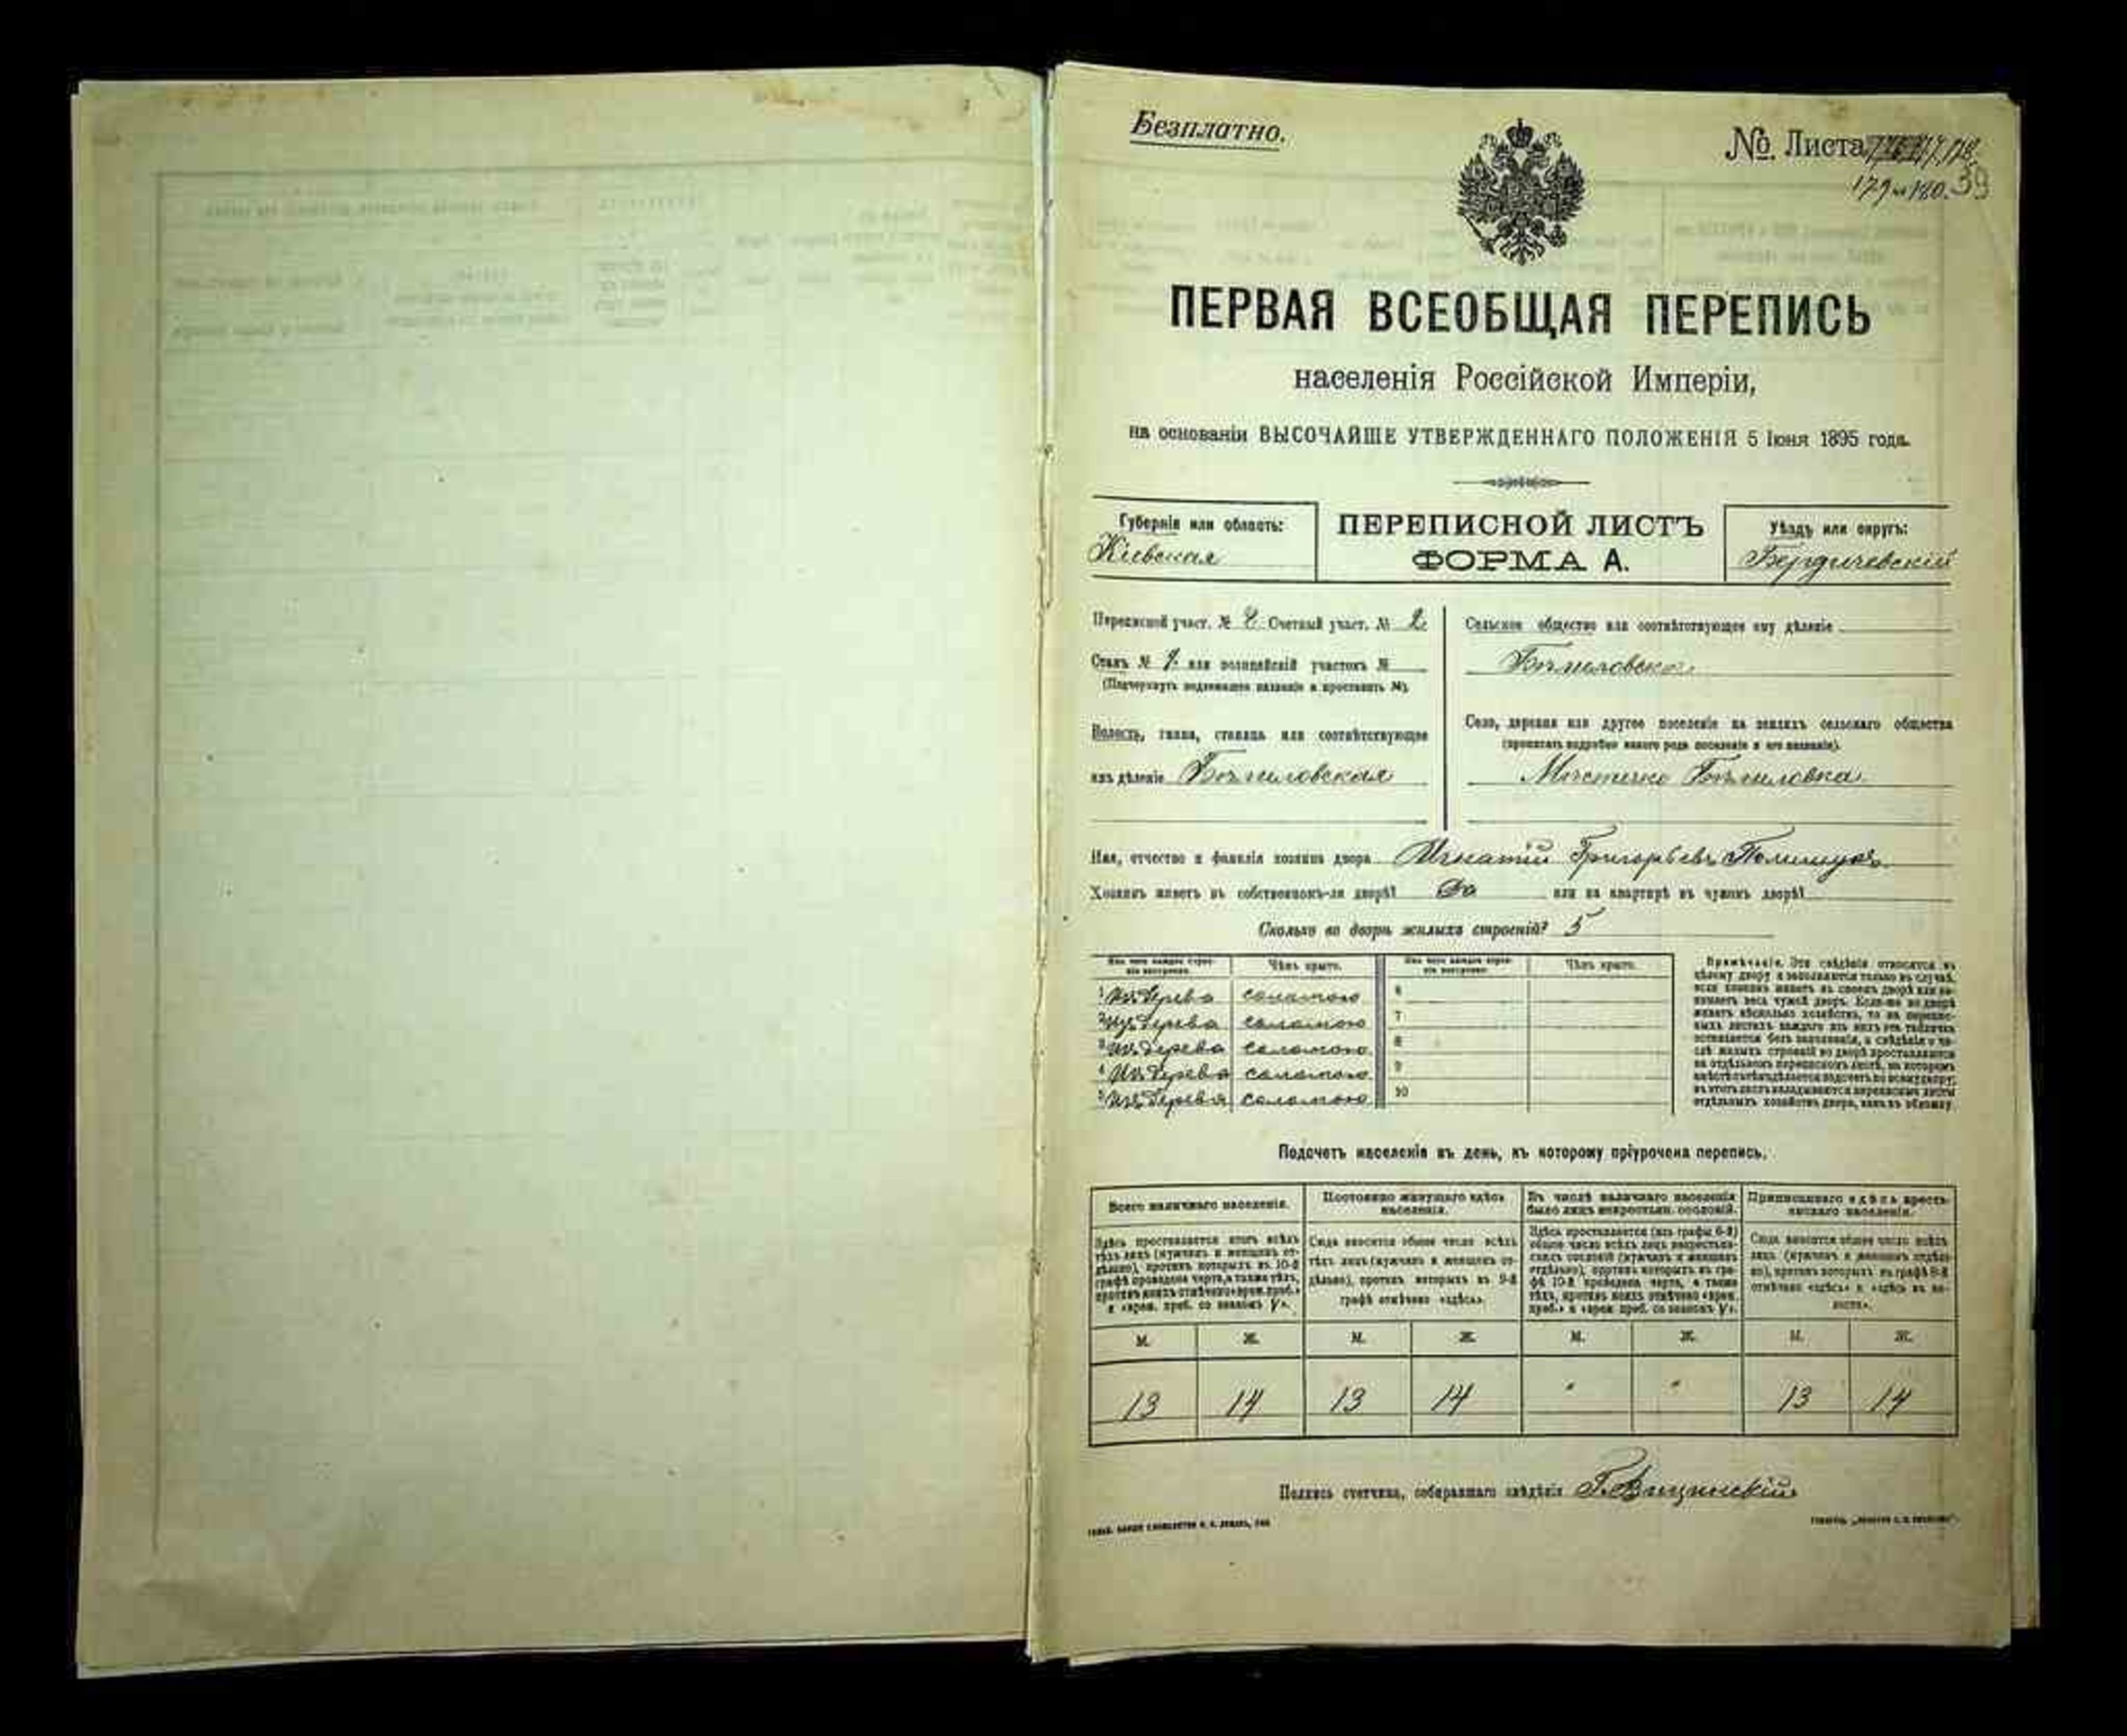 Безплатно.
№ Листа
179 и 180. 39
ПЕРВАЯ ВСЕОБЩАЯ ПЕРЕПИСЬ
населенія Россійской Имперіи,
на основаніи ВЫСОЧАЙШЕ УТВЕРЖДЕННАГО ПОЛОЖЕНІЯ 5 Іюня 1895 года.
Губернія или область:
Кіевская
ПЕРЕПИСНОЙ ЛИСТЪ
ФОРМА А.
Уѣздъ или округъ:
Бердичевскій
Переписной участ. № Счетный участ. № 2
Станъ № или полицейскій участокъ №
(Подчеркнуть надлежащее названіе и проставить №).
Волость, гмина, станица или соотвѣтствующее
имъ дѣленіе
Сельское общество или соотвѣтствующее ему дѣленіе
Село, деревня или другое поселеніе на земляхъ сельскаго общества
(прописать подробно какого рода поселеніе и его названіе).
Мѣстечко
Имя, отчество и фамилія хозяина двора Игнатій Григорьевъ Полищукъ
Хозяинъ живетъ въ собственномъ-ли дворѣ? Да или на квартирѣ въ чужомъ дворѣ?
Сколько во дворѣ жилыхъ строеній? 5
Изъ чего каждое строеніе построено. Чѣмъ крыто. Изъ чего каждое строеніе построено. Чѣмъ крыто.
1 Изъ дерева соломою 6
2 Изъ дерева соломою 7
3 Изъ дерева соломою 8
4 Изъ дерева соломою 9
5 Изъ дерева соломою 10
Примѣчаніе. Эти свѣдѣнія относятся къ
цѣлому двору и заполняются только въ случаѣ,
если хозяинъ живетъ въ своемъ дворѣ или за-
нимаетъ весь чужой дворъ. Если-же во дворѣ
живетъ нѣсколько хозяйствъ, то на перепис-
ныхъ листахъ каждаго изъ нихъ эта табличка
оставляется безъ заполненія, а свѣдѣнія о чи-
слѣ жилыхъ строеній во дворѣ проставляются
на отдѣльномъ переписномъ листѣ, на которомъ
въ этотъ листъ вкладываются переписные листы
отдѣльныхъ хозяйствъ двора, какъ въ обложку.
Подсчетъ населенія въ день, къ которому пріурочена перепись.
Всего наличнаго населенія.
Здѣсь проставляется итогъ всѣхъ
тѣхъ лицъ (мужчинъ и женщинъ от-
дѣльно), противъ которыхъ въ 10-й
графѣ проведена черта, а также тѣхъ,
противъ коихъ отмѣчено «врем. преб.»
и «врем. преб. со знакомъ V».
Постоянно живущаго здѣсь
населенія.
Сюда вносится общее число всѣхъ
тѣхъ лицъ (мужчинъ и женщинъ от-
дѣльно), противъ которыхъ въ 9-й
графѣ отмѣчено «здѣсь».
Въ числѣ наличнаго населенія
было лицъ некрестьян. сословій.
Здѣсь проставляется (изъ графы 6-й)
общее число всѣхъ лицъ некрестьян-
скихъ сословій (мужчинъ и женщинъ
отдѣльно), противъ которыхъ въ гра-
фѣ 10-й проведена черта, а также
тѣхъ, противъ коихъ отмѣчено «врем.
преб.» и «врем. преб. со знакомъ V».
Приписаннаго здѣсь кресть-
янскаго населенія.
Сюда вносится общее число всѣхъ
лицъ (мужчинъ и женщинъ отдѣль-
но), противъ которыхъ въ графѣ 8-й
отмѣчено «здѣсь» и «здѣсь въ во-
лости».
М. Ж. М. Ж. М. Ж. М. Ж.
13 14 13 14 " " 13 14
Подпись счетчика, собиравшаго свѣдѣнія